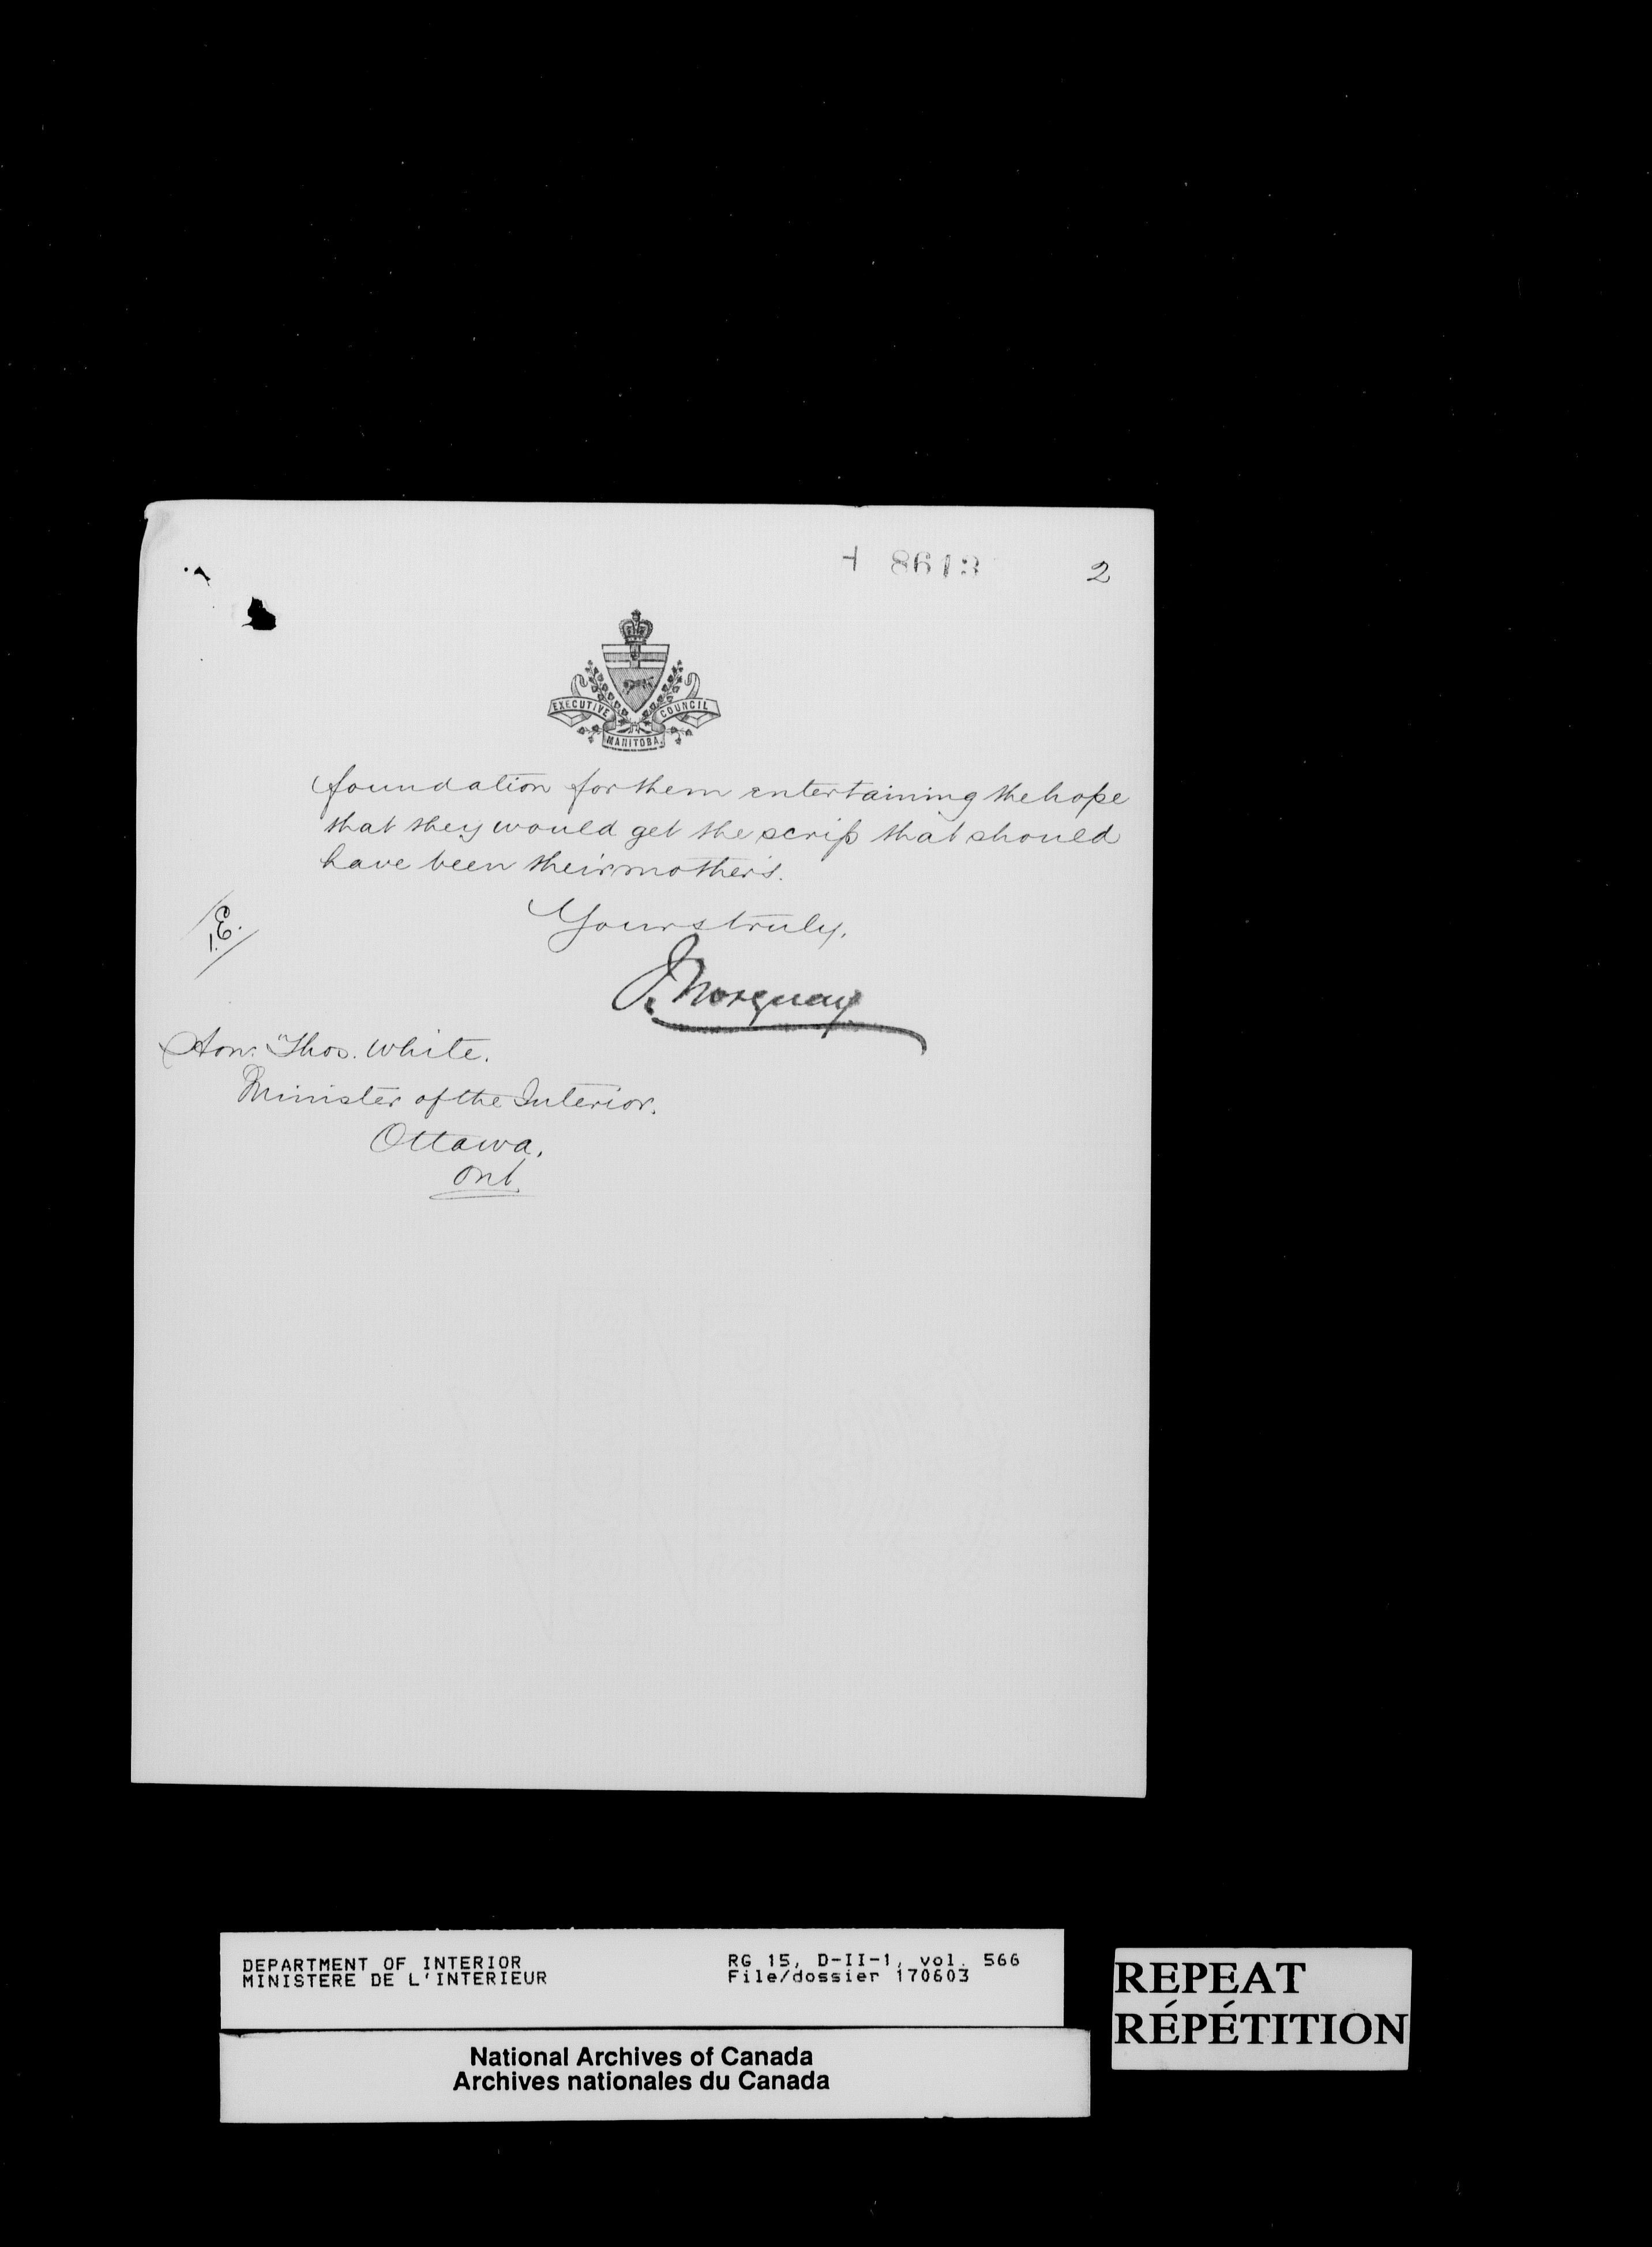 8613
2
EXECUTIVE COUNCIL
MANITOBA.
foundation for them entertaining the hope
that they would get the scrip that should
have been their mother's.
Yours truly,
J. Norquay
Hon. Thos. White.
Minister of the Interior.
Ottawa,
Ont
DEPARTMENT OF INTERIOR
MINISTERE DE L'INTERIEUR
RG 15, D-II-1, vol. 566
File/dossier 170603
National Archives of Canada
Archives nationales du Canada
REPEAT
RÉPÉTITION